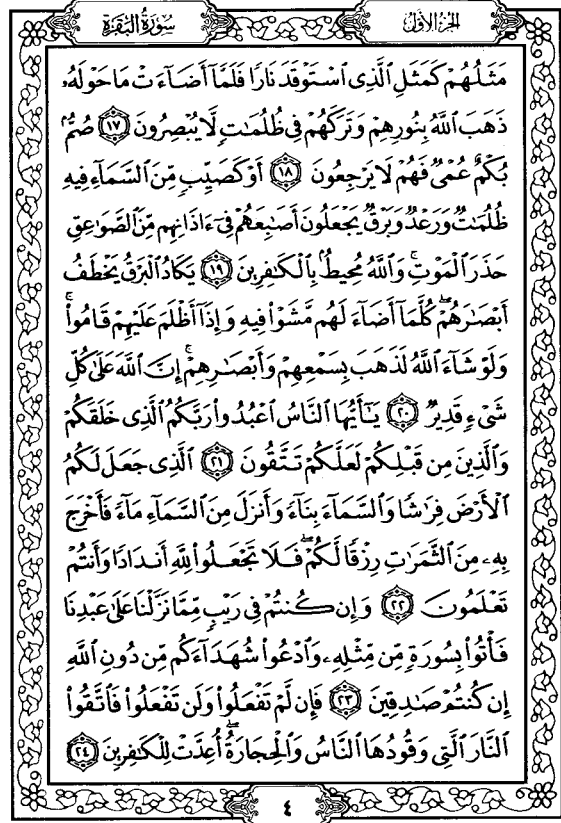 الجزء الأول
سورة البقرة
مَثَلُهُمْ كَمَثَلِ ٱلَّذِى ٱسْتَوْقَدَ نَارًا فَلَمَّآ أَضَآءَتْ مَا حَوْلَهُۥ
ذَهَبَ ٱللَّهُ بِنُورِهِمْ وَتَرَكَهُمْ فِى ظُلُمَٰتٍ لَّا يُبْصِرُونَ ١٧ صُمٌّۢ
بُكْمٌ عُمْىٌ فَهُمْ لَا يَرْجِعُونَ ١٨ أَوْ كَصَيِّبٍ مِّنَ ٱلسَّمَآءِ فِيهِ
ظُلُمَٰتٌ وَرَعْدٌ وَبَرْقٌ يَجْعَلُونَ أَصَٰبِعَهُمْ فِىٓ ءَاذَانِهِم مِّنَ ٱلصَّوَٰعِقِ
حَذَرَ ٱلْمَوْتِ ۚ وَٱللَّهُ مُحِيطٌۢ بِٱلْكَٰفِرِينَ ١٩ يَكَادُ ٱلْبَرْقُ يَخْطَفُ
أَبْصَٰرَهُمْ ۖ كُلَّمَآ أَضَآءَ لَهُم مَّشَوْا۟ فِيهِ وَإِذَآ أَظْلَمَ عَلَيْهِمْ قَامُوا۟ ۚ
وَلَوْ شَآءَ ٱللَّهُ لَذَهَبَ بِسَمْعِهِمْ وَأَبْصَٰرِهِمْ ۚ إِنَّ ٱللَّهَ عَلَىٰ كُلِّ
شَىْءٍ قَدِيرٌ ٢٠ يَٰٓأَيُّهَا ٱلنَّاسُ ٱعْبُدُوا۟ رَبَّكُمُ ٱلَّذِى خَلَقَكُمْ
وَٱلَّذِينَ مِن قَبْلِكُمْ لَعَلَّكُمْ تَتَّقُونَ ٢١ ٱلَّذِى جَعَلَ لَكُمُ
ٱلْأَرْضَ فِرَٰشًا وَٱلسَّمَآءَ بِنَآءً وَأَنزَلَ مِنَ ٱلسَّمَآءِ مَآءً فَأَخْرَجَ
بِهِۦ مِنَ ٱلثَّمَرَٰتِ رِزْقًا لَّكُمْ ۖ فَلَا تَجْعَلُوا۟ لِلَّهِ أَندَادًا وَأَنتُمْ
تَعْلَمُونَ ٢٢ وَإِن كُنتُمْ فِى رَيْبٍ مِّمَّا نَزَّلْنَا عَلَىٰ عَبْدِنَا
فَأْتُوا۟ بِسُورَةٍ مِّن مِّثْلِهِۦ وَٱدْعُوا۟ شُهَدَآءَكُم مِّن دُونِ ٱللَّهِ
إِن كُنتُمْ صَٰدِقِينَ ٢٣ فَإِن لَّمْ تَفْعَلُوا۟ وَلَن تَفْعَلُوا۟ فَٱتَّقُوا۟
ٱلنَّارَ ٱلَّتِى وَقُودُهَا ٱلنَّاسُ وَٱلْحِجَارَةُ ۖ أُعِدَّتْ لِلْكَٰفِرِينَ ٢٤
٤